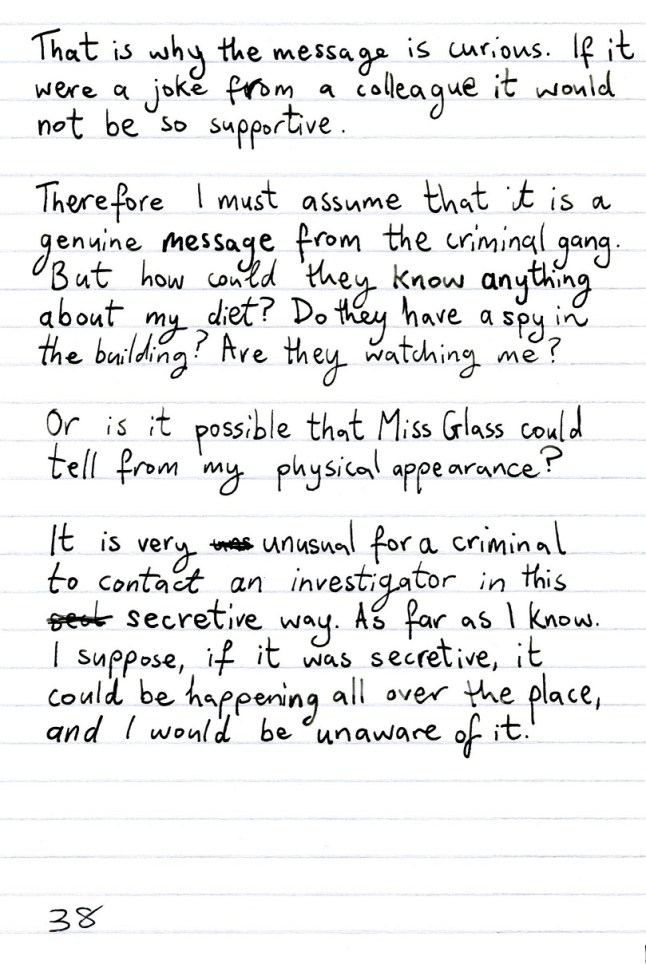 That is why the message is curious. If it
were a joke from a colleague it would
not be so supportive.
Therefore I must assume that it is a
genuine message from the criminal gang.
But how could they know anything
about my diet? Do they have a spy in
the building? Are they watching me?
Or is it possible that Miss Glass could
tell from my physical appearance?
It is very unusual for a criminal
to contact an investigator in this
secretive way. As far as I know.
I suppose, if it was secretive, it
could be happening all over the place,
and I would be unaware of it.
38